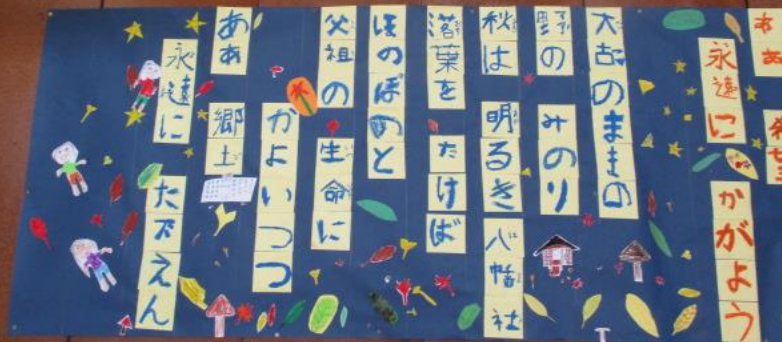 永遠に かがよう
太古のままの
野の みのり
秋は 明るき 八幡社
落葉を たけば
ほのぼのと
父祖の 生命に
かよいつつ
ああ 郷土
永遠に たたえん